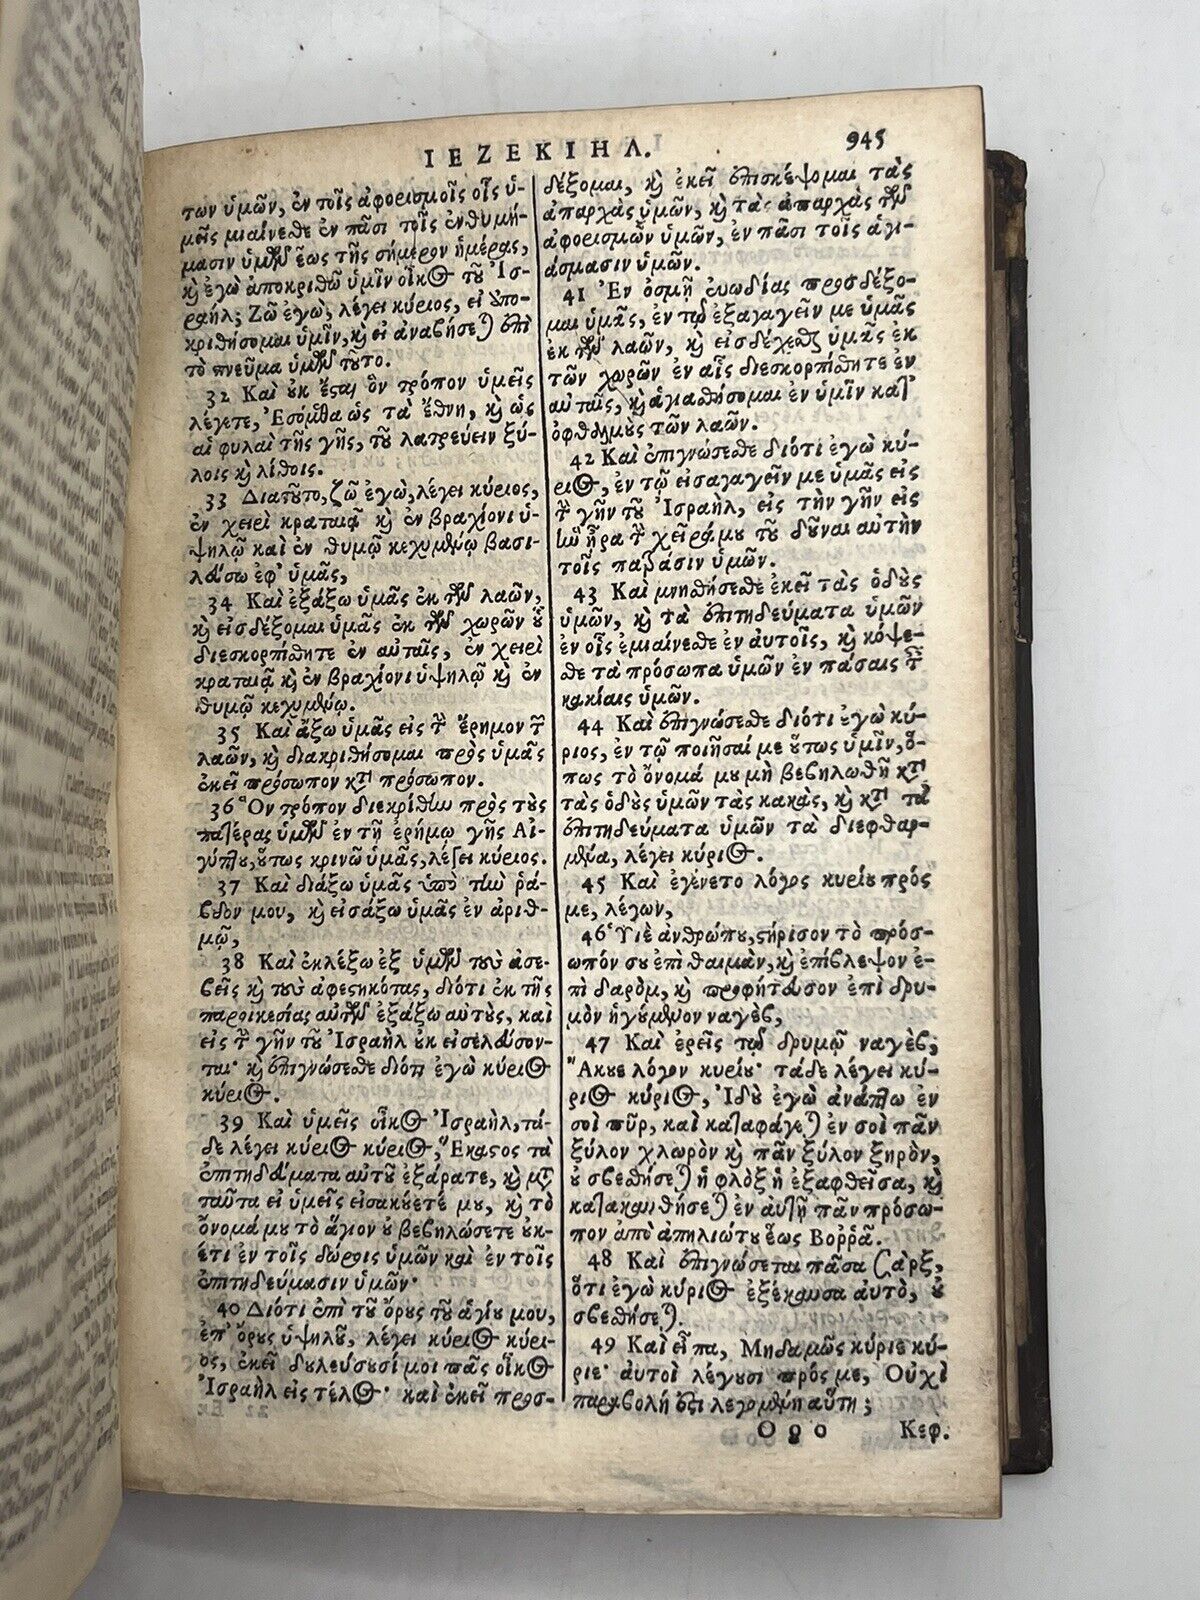 ΙΕΖΕΚΙΗΛ. 945
των ὑμῶν, ἐν τοῖς ἀφορισμοῖς οἷς ὑ-
μεῖς μιαίνεσθε ἐν πᾶσι τοῖς ἐνθυμή-
μασιν ὑμῶν ἕως τῆς σήμερον ἡμέρας,
καὶ ἐγὼ ἀποκριθῶ ὑμῖν οἶκος τοῦ Ἰσ-
ραήλ; Ζῶ ἐγὼ, λέγει κύριος, εἰ ἀπο-
κριθήσομαι ὑμῖν, καὶ εἰ ἀναβήσεται ἐπὶ
τὸ πνεῦμα ὑμῶν τοῦτο.
32 Καὶ οὐκ ἔσται ὃν τρόπον ὑμεῖς
λέγετε, Ἐσόμεθα ὡς τὰ ἔθνη, καὶ ὡς
αἱ φυλαὶ τῆς γῆς, τοῦ λατρεύειν ξύ-
λοις καὶ λίθοις.
33 Διατοῦτο, ζῶ ἐγὼ, λέγει κύριος,
ἐν χειρὶ κραταιᾷ καὶ ἐν βραχίονι ὑ-
ψηλῷ καὶ ἐν θυμῷ κεχυμένῳ βασι-
λεύσω ἐφ' ὑμᾶς,
34 Καὶ ἐξάξω ὑμᾶς ἐκ τῶν λαῶν,
καὶ εἰσδέξομαι ὑμᾶς ἐκ τῶν χωρῶν οὗ
διεσκορπίσθητε ἐν αὐταῖς, ἐν χειρὶ
κραταιᾷ καὶ ἐν βραχίονι ὑψηλῷ καὶ ἐν
θυμῷ κεχυμένῳ.
35 Καὶ ἄξω ὑμᾶς εἰς τὴν ἔρημον τῶν
λαῶν, καὶ διακριθήσομαι πρὸς ὑμᾶς
ἐκεῖ πρόσωπον κατὰ πρόσωπον.
36 Ὃν τρόπον διεκρίθην πρὸς τοὺς
πατέρας ὑμῶν ἐν τῇ ἐρήμῳ γῆς Αἰ-
γύπτου, οὕτως κρινῶ ὑμᾶς, λέγει κύριος.
37 Καὶ διάξω ὑμᾶς ὑπὸ τὴν ῥά-
βδον μου, καὶ εἰσάξω ὑμᾶς ἐν ἀριθ-
μῷ,
38 Καὶ ἐκλέξω ἐξ ὑμῶν τοὺς ἀσε-
βεῖς καὶ τοὺς ἀφεστηκότας, διότι ἐκ τῆς
παροικεσίας αὐτῶν ἐξάξω αὐτοὺς, καὶ
εἰς τὴν γῆν τοῦ Ἰσραὴλ οὐκ εἰσελεύσον-
ται· καὶ ἐπιγνώσεσθε διότι ἐγὼ κύριος
κύριος.
39 Καὶ ὑμεῖς οἶκος Ἰσραὴλ, τά-
δε λέγει κύριος κύριος, Ἕκαστος τὰ
ἐπιτηδεύματα αὐτοῦ ἐξάρατε, καὶ μετὰ
ταῦτα εἰ ὑμεῖς εἰσακούετέ μου, καὶ τὸ
ὄνομά μου τὸ ἅγιον οὐ βεβηλώσετε οὐκ-
έτι ἐν τοῖς δώροις ὑμῶν καὶ ἐν τοῖς
ἐπιτηδεύμασιν ὑμῶν·
40 Διότι ἐπὶ τοῦ ὄρους τοῦ ἁγίου μου,
ἐπ' ὄρους ὑψηλοῦ, λέγει κύριος κύρι-
ος, ἐκεῖ δουλεύσουσί μοι πᾶς οἶκος
Ἰσραὴλ εἰς τέλος· καὶ ἐκεῖ προσ-
δέξομαι, καὶ ἐκεῖ ἐπισκέψομαι τὰς
ἀπαρχὰς ὑμῶν, καὶ τὰς ἀπαρχὰς τῶν
ἀφορισμῶν ὑμῶν, ἐν πᾶσι τοῖς ἁγι-
άσμασιν ὑμῶν.
41 Ἐν ὀσμῇ εὐωδίας προσδέξο-
μαι ὑμᾶς, ἐν τῷ ἐξαγαγεῖν με ὑμᾶς
ἐκ τῶν λαῶν, καὶ εἰσδέχεσθαι ὑμᾶς ἐκ
τῶν χωρῶν ἐν αἷς διεσκορπίσθητε ἐν
αὐταῖς, καὶ ἁγιασθήσομαι ἐν ὑμῖν κατ'
ὀφθαλμοὺς τῶν λαῶν.
42 Καὶ ἐπιγνώσεσθε διότι ἐγὼ κύ-
ριος, ἐν τῷ εἰσαγαγεῖν με ὑμᾶς εἰς
τὴν γῆν τοῦ Ἰσραὴλ, εἰς τὴν γῆν εἰς
ἣν ἦρα τὴν χεῖρά μου τοῦ δοῦναι αὐτὴν
τοῖς πατράσιν ὑμῶν.
43 Καὶ μνησθήσεσθε ἐκεῖ τὰς ὁδοὺς
ὑμῶν, καὶ τὰ ἐπιτηδεύματα ὑμῶν
ἐν οἷς ἐμιαίνεσθε ἐν αὐτοῖς, καὶ κόψε-
σθε τὰ πρόσωπα ὑμῶν ἐν πάσαις ταῖς
κακίαις ὑμῶν.
44 Καὶ ἐπιγνώσεσθε διότι ἐγὼ κύ-
ριος, ἐν τῷ ποιῆσαί με οὕτως ὑμῖν, ὅ-
πως τὸ ὄνομά μου μὴ βεβηλωθῇ κατὰ
τὰς ὁδοὺς ὑμῶν τὰς κακὰς, καὶ κατὰ τὰ
ἐπιτηδεύματα ὑμῶν τὰ διεφθαρ-
μένα, λέγει κύριος.
45 Καὶ ἐγένετο λόγος κυρίου πρός
με, λέγων,
46 Υἱὲ ἀνθρώπου, στήρισον τὸ πρόσ-
ωπόν σου ἐπὶ θαιμὰν, καὶ ἐπίβλεψον ἐ-
πὶ δαρὸμ, καὶ προφήτευσον ἐπὶ δρυ-
μὸν ἡγούμενον ναγὲβ,
47 Καὶ ἐρεῖς τῷ δρυμῷ ναγὲβ,
Ἄκουε λόγον κυρίου· τάδε λέγει κύ-
ριος κύριος, Ἰδοὺ ἐγὼ ἀνάπτω ἐν
σοὶ πῦρ, καὶ καταφάγεται ἐν σοὶ πᾶν
ξύλον χλωρὸν καὶ πᾶν ξύλον ξηρὸν,
οὐ σβεσθήσεται ἡ φλὸξ ἡ ἐξαφθεῖσα, καὶ
κατακαυθήσεται ἐν αὐτῇ πᾶν πρόσω-
πον ἀπὸ ἀπηλιώτου ἕως Βοῤῥᾶ.
48 Καὶ ἐπιγνώσεται πᾶσα σὰρξ,
ὅτι ἐγὼ κύριος ἐξέκαυσα αὐτὸ, οὐ
σβεσθήσεται.
49 Καὶ εἶπα, Μηδαμῶς κύριε κύ-
ριε· αὐτοὶ λέγουσι πρός με, Οὐχὶ
παραβολή ἐστι λεγομένη αὕτη;
Οοο Κεφ.